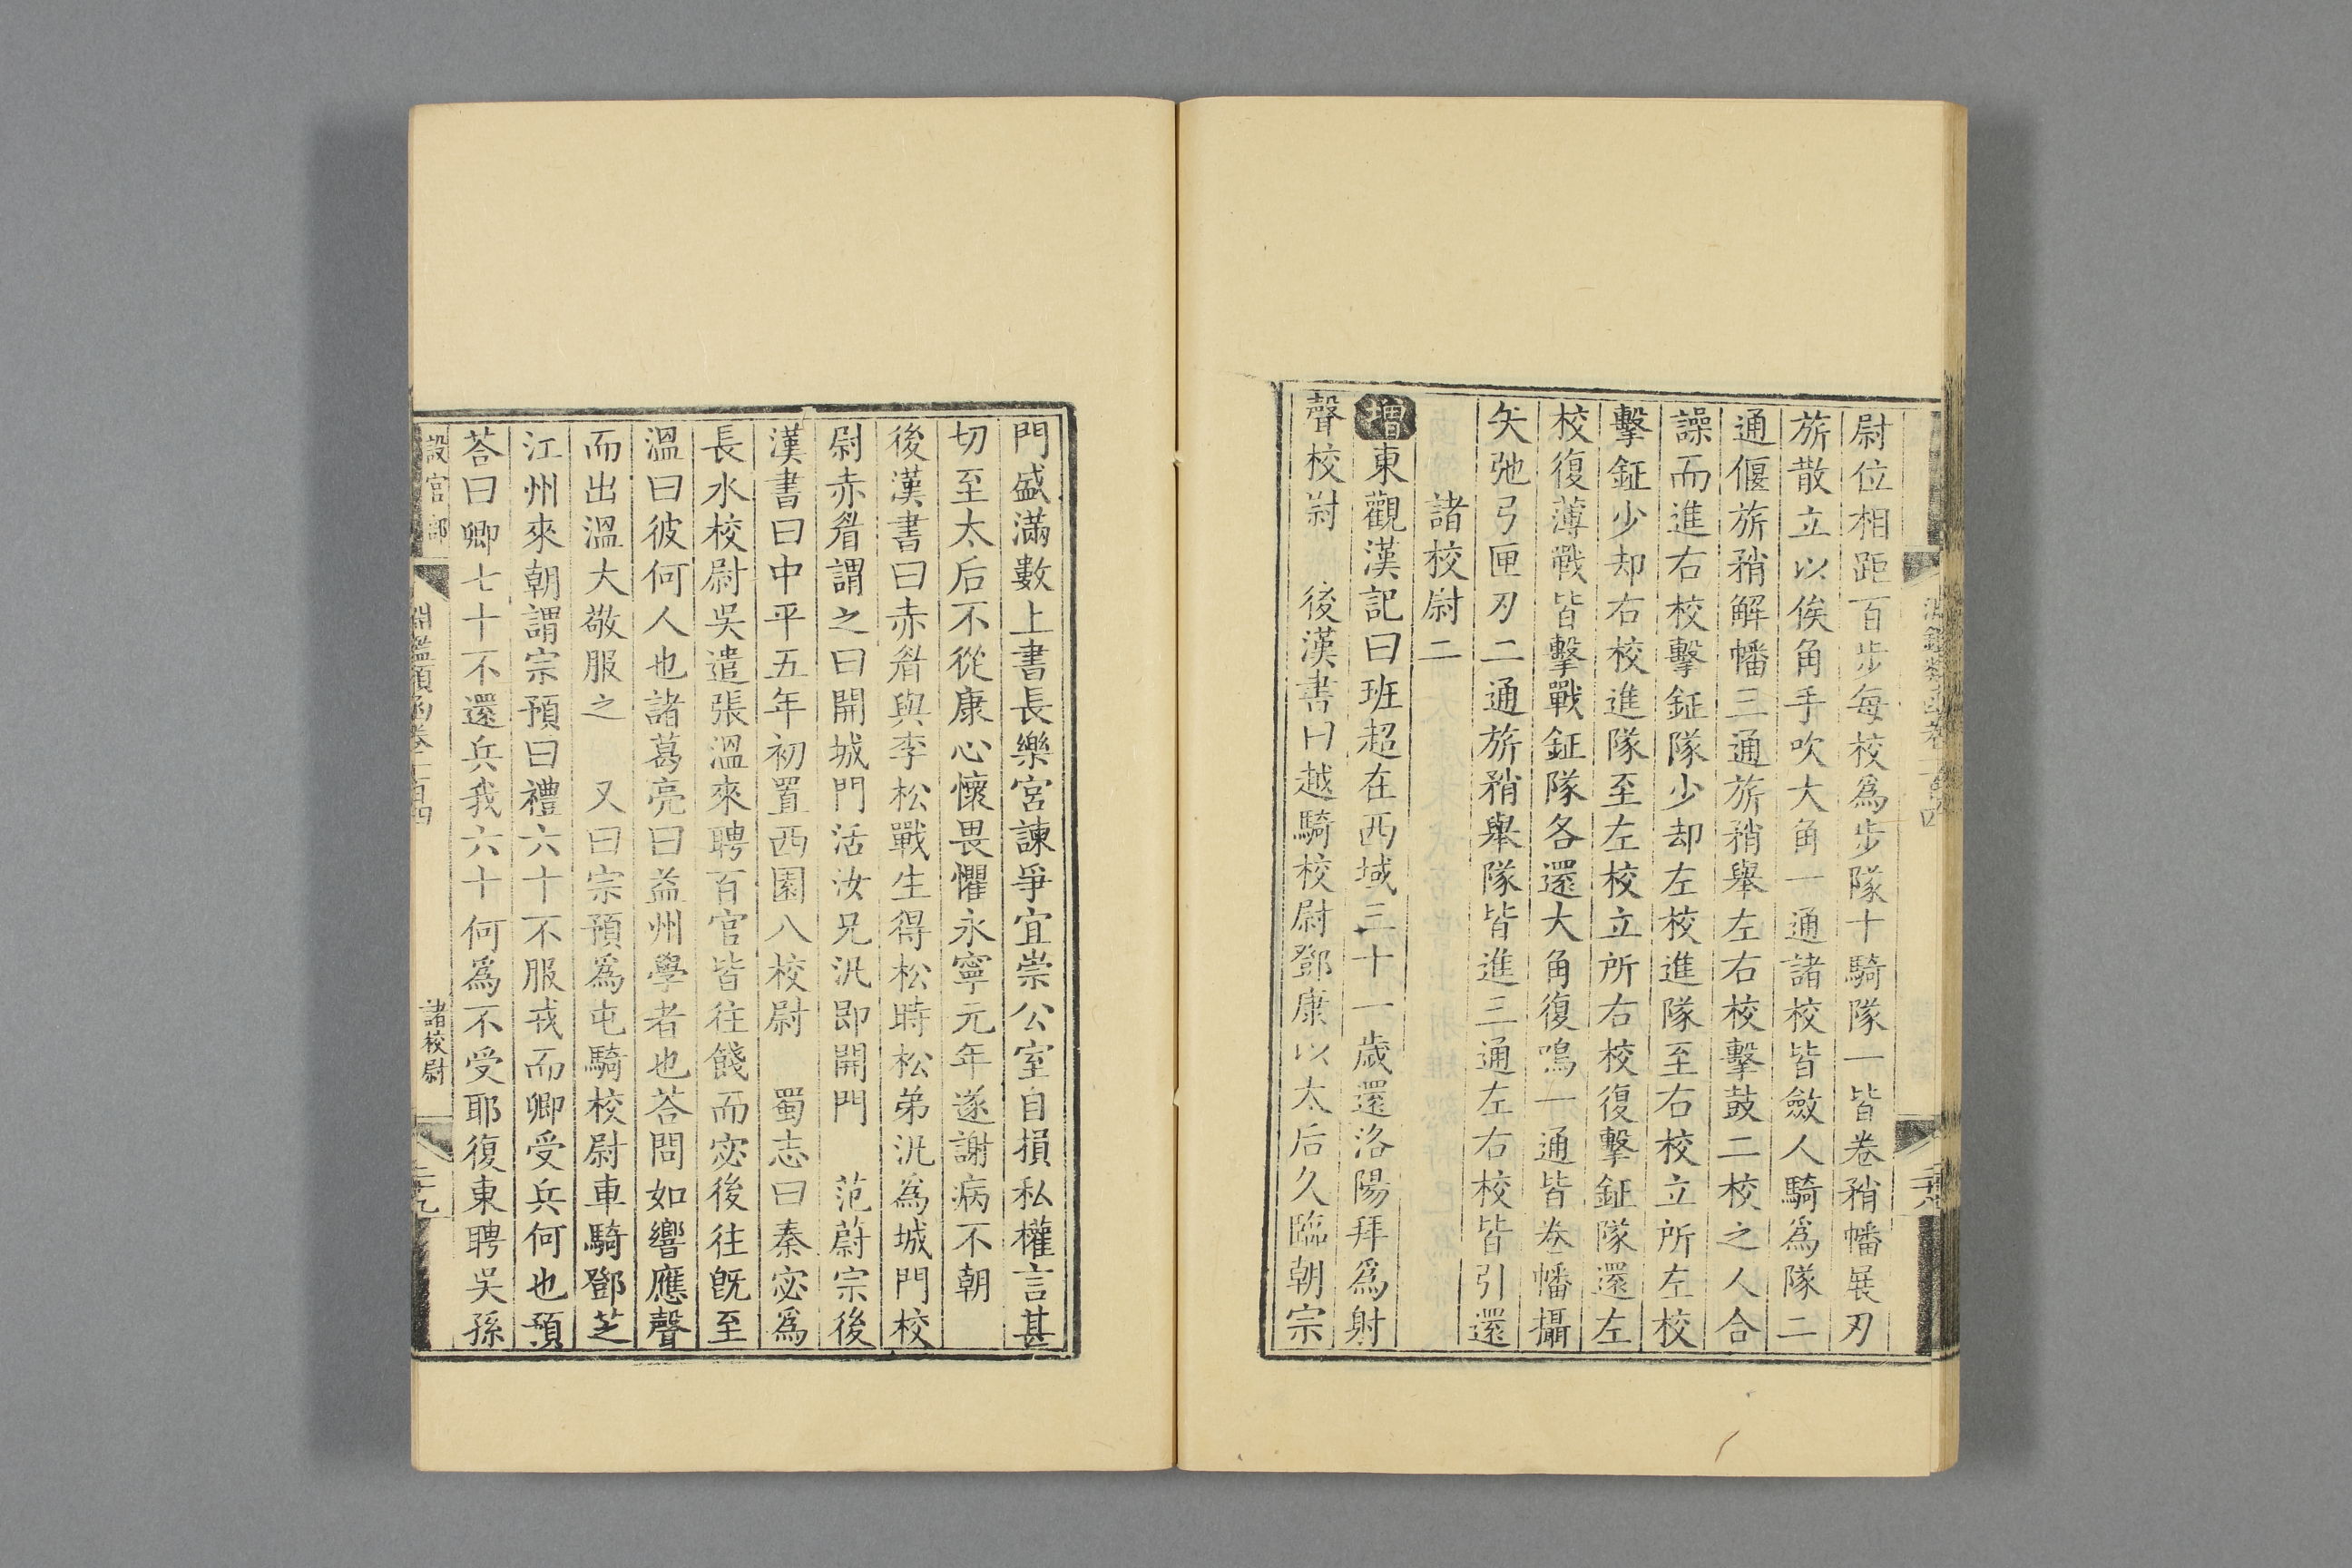 尉位相距百步每校爲步隊十騎隊一皆卷矟幡展刃
旂散立以俟角手吹大角一通諸校皆斂人騎爲隊二
通偃旂矟解幡三通旂矟舉左右校擊鼓二校之人合
譟而進右校擊鉦隊少却左校進隊至右校立所左校
擊鉦少却右校進隊至左校立所右校復擊鉦隊還左
校復薄戰皆擊戰鉦隊各還大角復鳴一通皆卷幡攝
矢弛弓匣刃二通旂矟舉隊皆進三通左右校皆引還
諸校尉二
增東觀漢記曰班超在西域三十一歲還洛陽拜爲射
聲校尉　後漢書曰越騎校尉鄧康以太后久臨朝宗
門盛滿數上書長樂宮諫爭宜崇公室自損私權言甚
切至太后不從康心懷畏懼永寧元年遂謝病不朝
後漢書曰赤眉與李松戰生得松時松弟汎爲城門校
尉赤眉謂之曰開城門活汝兄汎即開門　范蔚宗後
漢書曰中平五年初置西園八校尉　蜀志曰秦宓爲
長水校尉吳遣張溫來聘百官皆往餞而宓後往旣至
溫曰彼何人也諸葛亮曰益州學者也荅問如響應聲
而出溫大敬服之　又曰宗預爲屯騎校尉車騎鄧芝
江州來朝謂宗預曰禮六十不服戎而卿受兵何也預
荅曰卿七十不還兵我六十何爲不受耶復東聘吳孫
設官部　淵鑑類函卷一百四　諸校尉　二十九